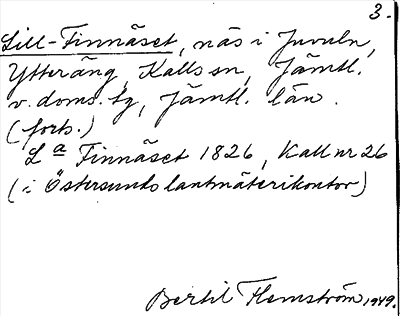 3.
Lill-Finnäset, näs i Juvuln,
Ytteräng, Kalls sn, Jämtl.
v. doms. tg, Jämtl. län.
(forts.)
La Finnäset 1826, Kall nr 26
(i Östersunds lantmäterikontor)
Bertil Flemström 1949.